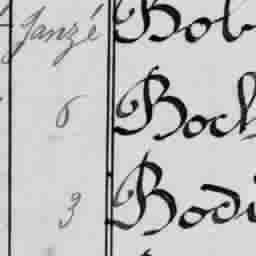 Janzé Bob
6 Boch
3 Bodi